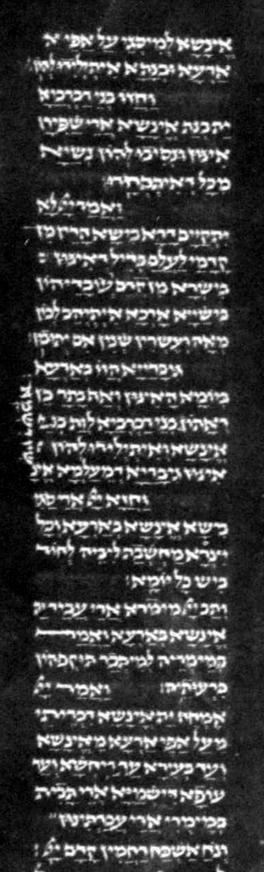 אינשא למיסגי על אפי א
ארעא ובנתא איתילידו להון
וחזו בני רברביא
ית בנת אינשא ארי שפירן
אינון ונסיבו להון נשיא
מכל
ואמר יי לא
יתקיים דרא בישא הדין
קדמי לעלם בדיל דאינון
בישרא עובדיהון
בישייא ארכא איתיהיב להון
מאה ועשרין שנין אם יתובון
גיבריא הוו בארעא
ביומיא האינון ואף בתר כן
בני רברביא לות בנת
אינשא ואיתילידו להון
אינון גיבריא דמעלמא
וחזא יי ארי
בישת אינשא בארעא וכל
ייצרא מחשבת ליביה לחוד
ביש כל יומא
ותב יי ארי עבד ית
אינשא בארעא ואמר
במימריה למיתבר תוקפהון
כרעותיה ואמר יי
אמחה ית אינשא דבריתי
מעל אפי ארעא מאינשא
ועד בעירא עד ריחשא ועד
עופא דישמייא ארי תבית
במימרי ארי עבדתינון
ונח אשכח רחמין קדם יי